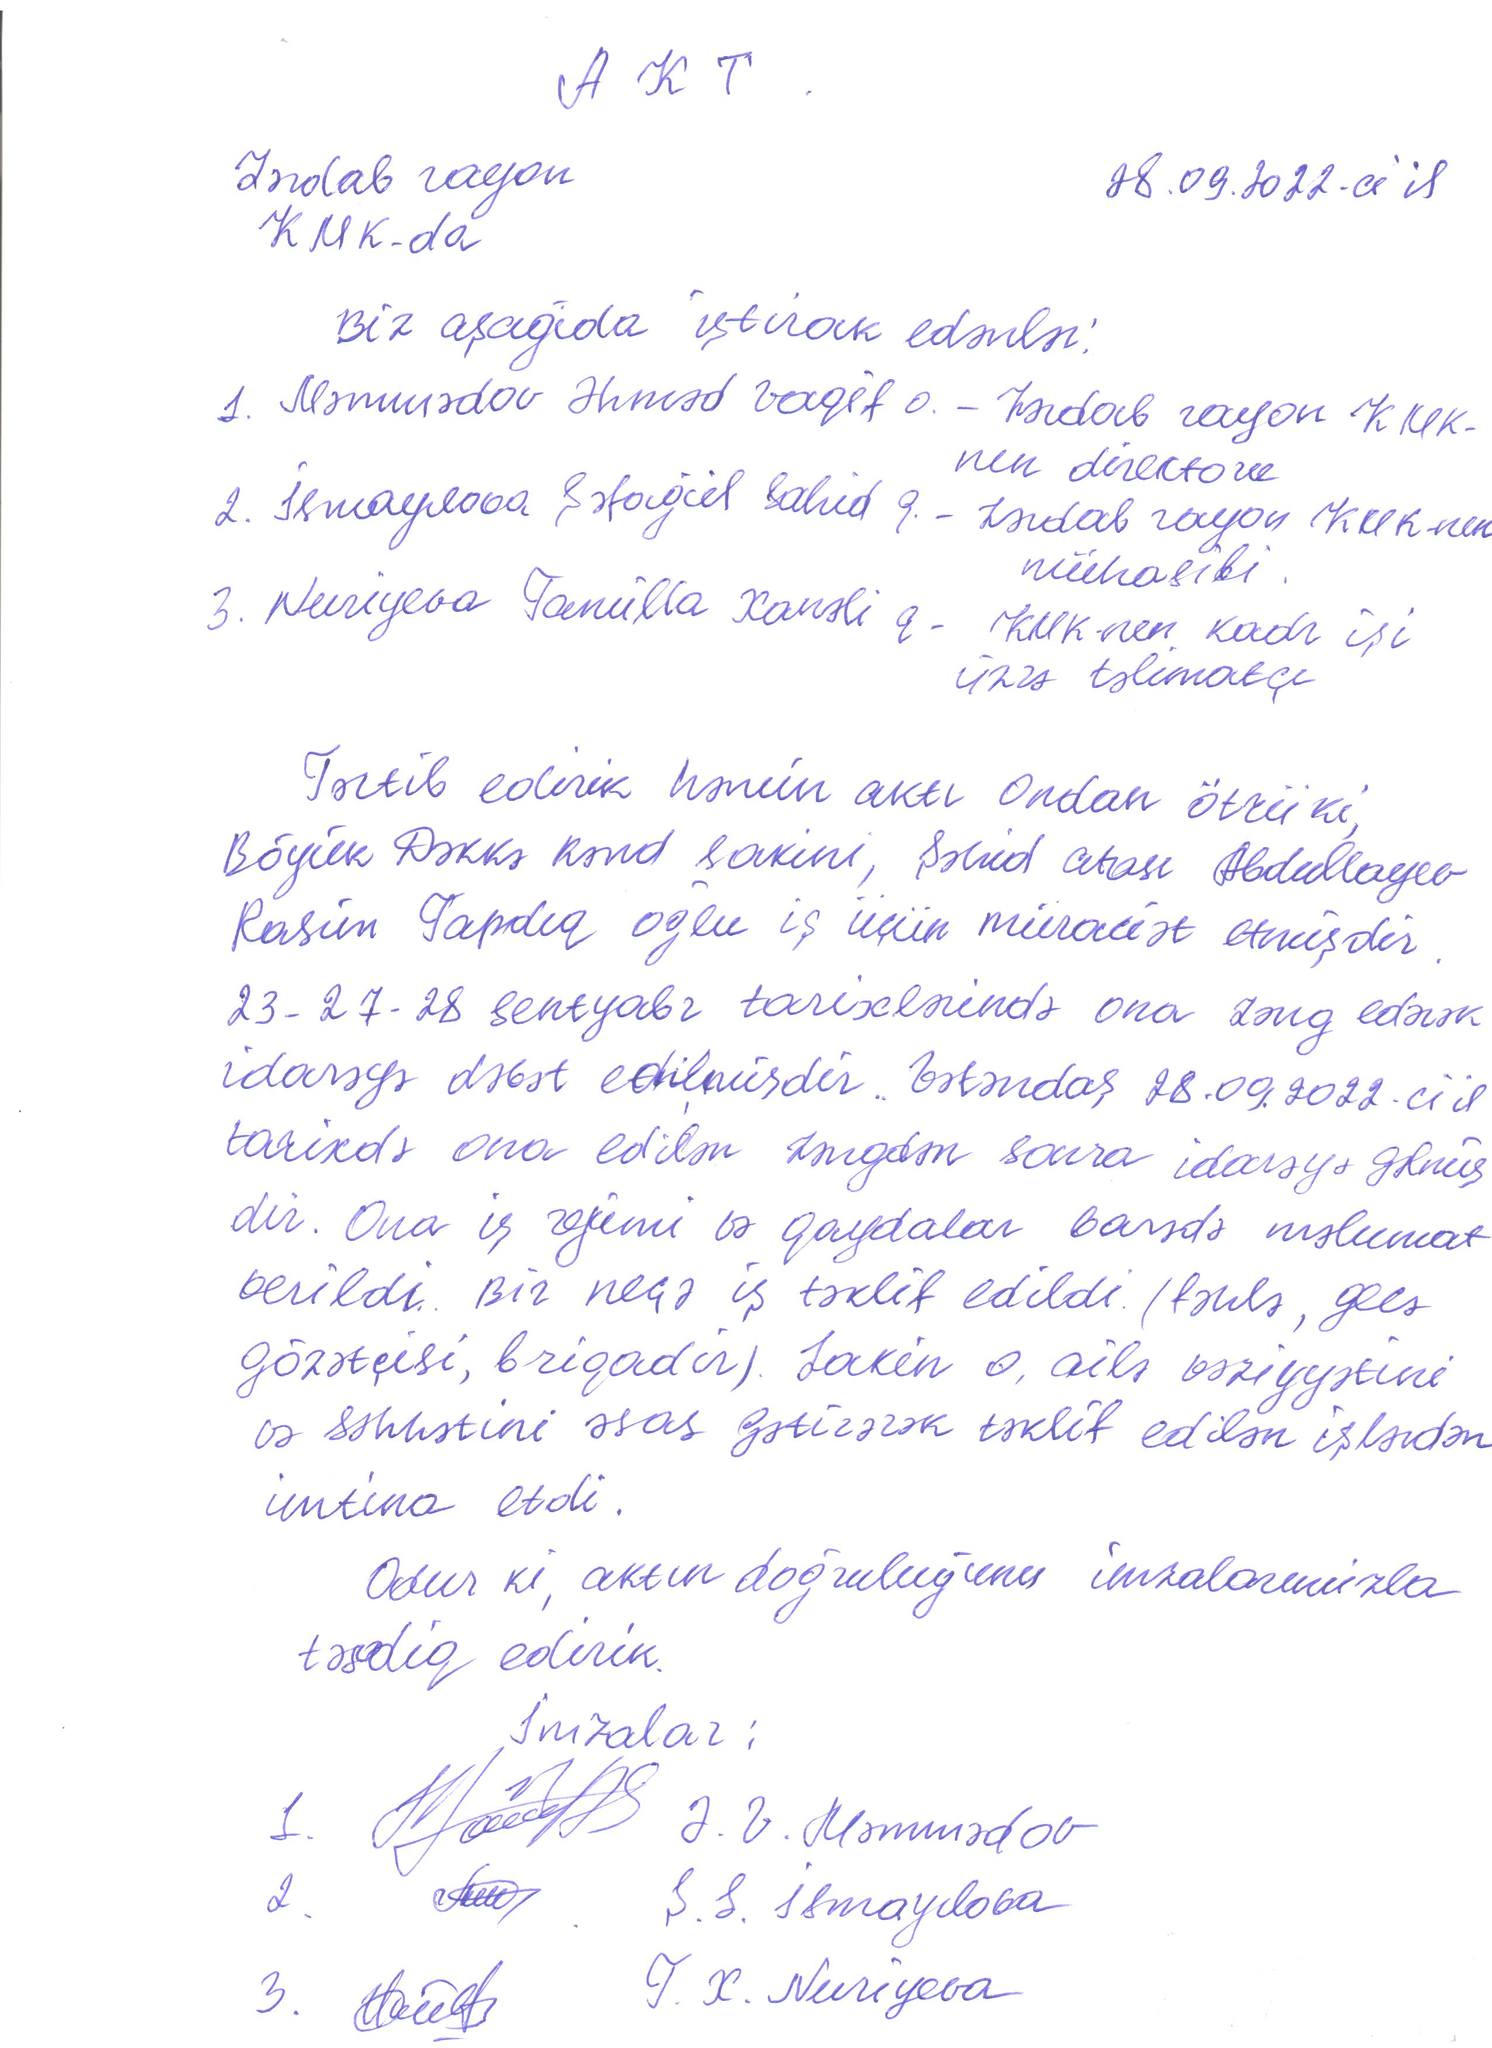 AKT.
Zərdab rayon
28.09.2022-ci il
KMK-da
Biz aşağıda iştirak edənlər:
1. Məmmədov Əhməd Vaqif o. - Zərdab rayon KMK-
nın direktoru
2. İsmayılova Şəfəgül Sahid q. - Zərdab rayon KMK-nın
mühasibi.
3. Nuriyeva Tamilla Xanəli q - KMK-nın kadr işi
üzrə təlimatçı
Tərtib edirik həmin aktı ondan ötrü ki,
Böyük Dəkkə kənd sakini, Şəhid atası Abdullayev
Rasim Tapdıq oğlu iş üçün müraciət etmişdir.
23-27-28 sentyabr tarixlərində ona zəng edərək
idarəyə dəvət edilmişdir. Vətəndaş 28.09.2022-ci il
tarixdə ona edilən zəngdən sonra idarəyə gəlmiş
dir. Ona iş rejimi və qaydalar barədə məlumat
verildi. Bir neçə iş təklif edildi. (fəhlə, gecə
gözətçisi, briqadir). Lakin o, ailə vəziyyətini
və səhhətini əsas gətirərək təklif edilən işlərdən
imtina etdi.
Odur ki, aktın doğruluğunu imzalarımızla
təsdiq edirik.
İmzalar:
1. Ə.V. Məmmədov
2. Ş.S. İsmayılova
3. T.X. Nuriyeva